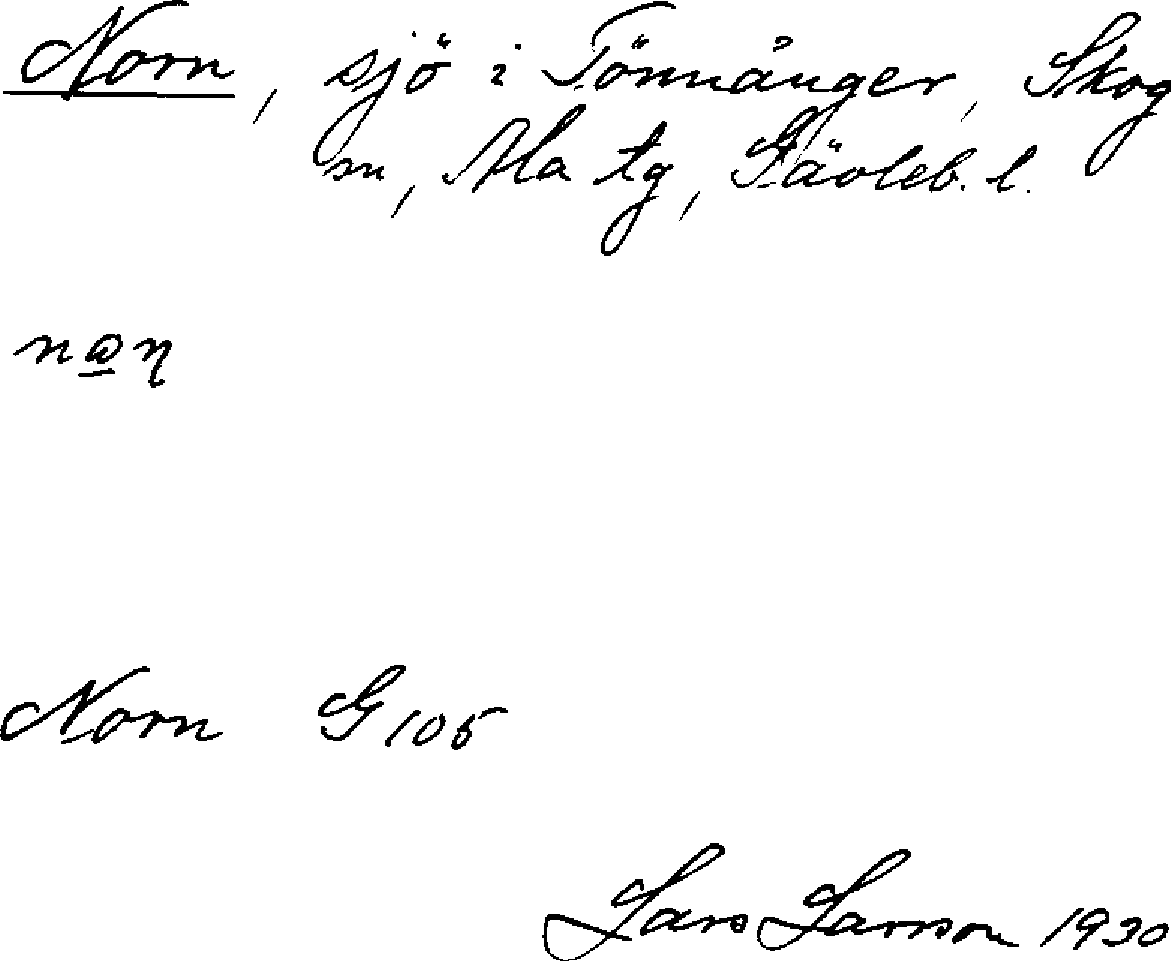 Norn, sjö i Tönnånger, Skog
sn, Ala tg, Gävleb. l.
Norn G 105
Lars Larsson 1930